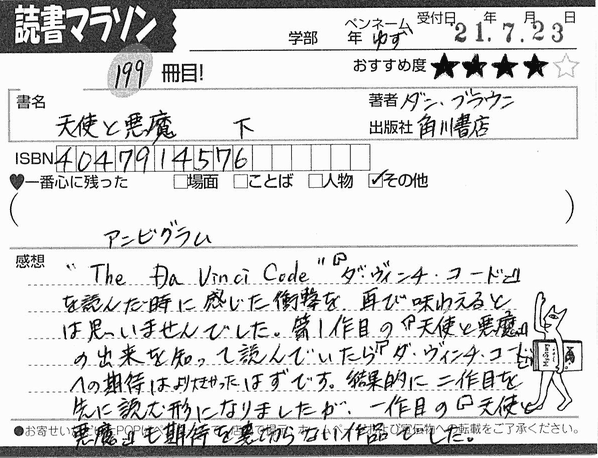 読書マラソン
学部 年 ペンネーム ゆず 受付日 21年7月23日
199 冊目! おすすめ度 ★★★★☆
書名 天使と悪魔 下
著者 ダン・ブラウン
出版社 角川書店
ISBN 4047914576
♥一番心に残った □場面 □ことば □人物 ☑その他
( アンビグラム )
感想
"The Da Vinci Code"『ダ・ヴィンチ・コード』
を読んだ時に感じた衝撃を、再び味わえると
は思いませんでした。第1作目の『天使と悪魔』
の出来を知って読んでいたら『ダ・ヴィンチ・コード
への期待はより大きかったはずです。結果的に二作目を
先に読む形になりましたが、一作目の『天使と
悪魔』も期待を裏切らない作品でした。
●お寄せいただいたPOPは
ホームページおよび宣伝物への転載をご了承ください。